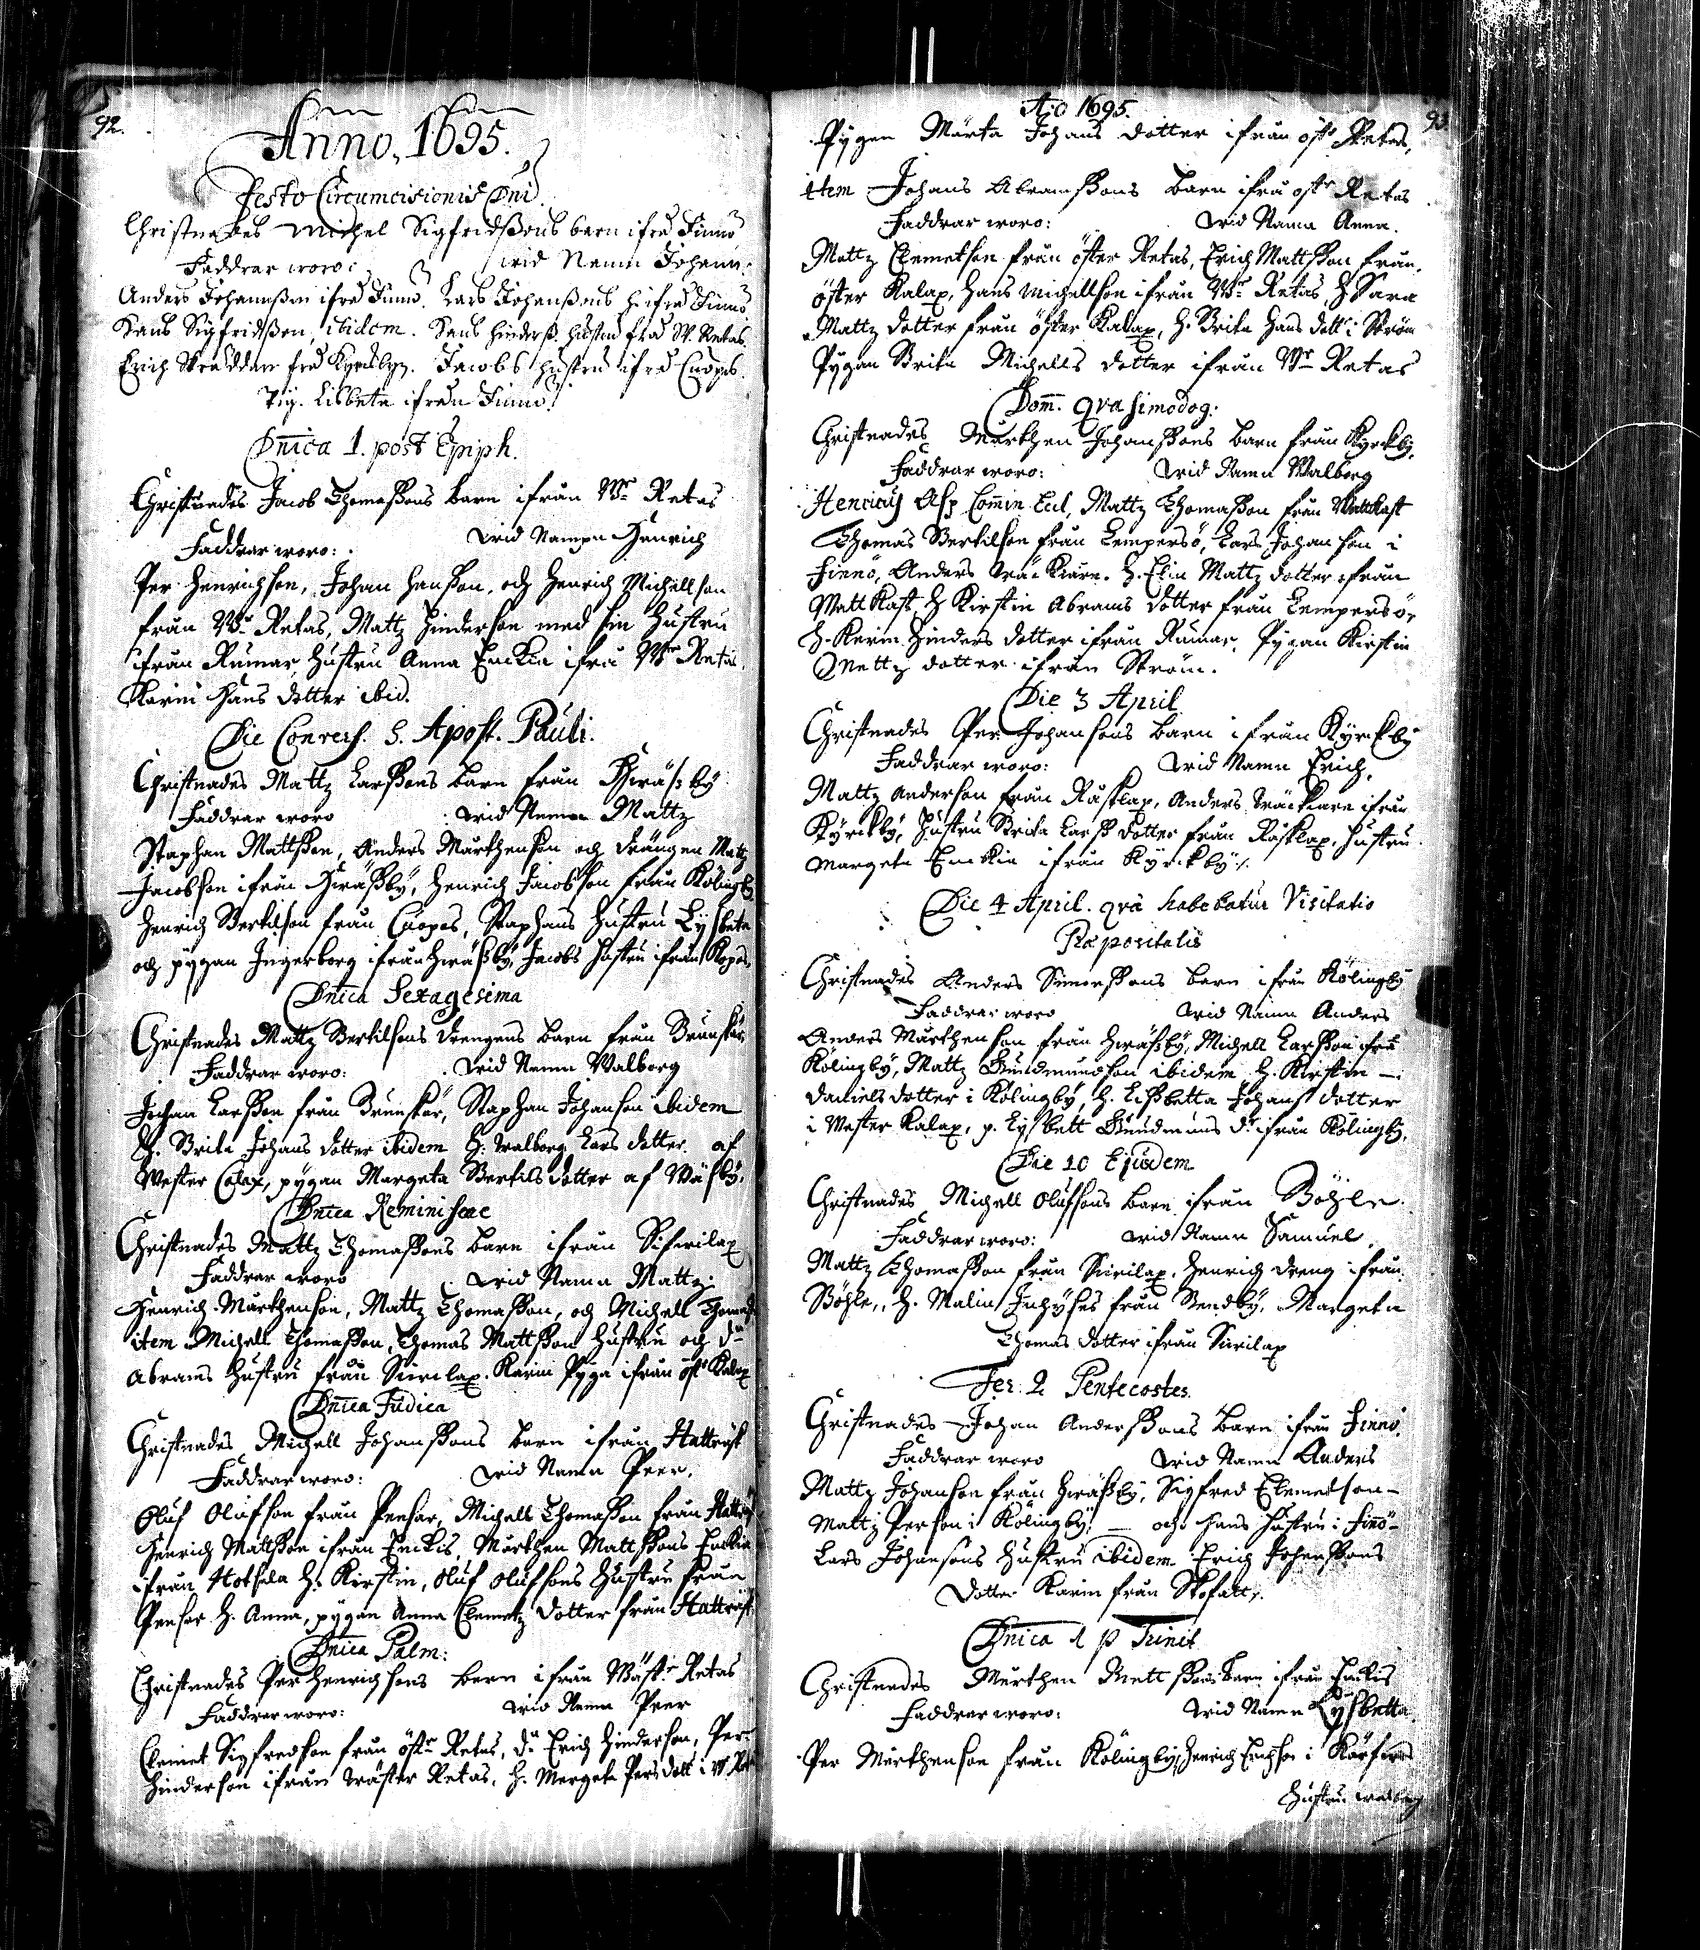 92.
Anno, 1695.
Festo Circumcisionis Dni
Christnades Michel Sigfridßons barn ifrå Finnö
Faddrar woro: wid Namn Johann.
Anders Johanßon ifrå Finnö. Lars Johanßons h: ifrå Finnö.
Hans Sigfridßon, ibidem. Hans Hinderß. hustru frå W. Retas.
Erich Skräddare frå Kyrkbyn. Jacobs hustru ifrå Cuopos.
Pig. Lisbeta ifrån Finnö.
Dnica 1. post Epiph.
Christnades Jacob Thomaßons barn ifrån Wr Retas
Faddrar woro: wid Nampn Henrich
Per Henrichson, Johan Hanßon, och Henrich Michellson
från Wr Retas, Mattz Hinderson med sin Hustru
ifrån Rumar, Hustru Anna Enckia ifrå Wr Retas.
Karin Hans dotter ibid.
Die Convers. S. Apost. Pauli.
Christnades Mattz Larßons barn från Hwäßby
Faddrar woro wid Namn Mattz
Staphan Mattßon, Anders Mårthenßon och drängen Matz
Jacobson ifrån Hwäßby, Henrich Jacobson från Kölingby
Henrich Bertilson från Cuopos, Staphans Hustru Lysbeta
och pygan Ingerborg ifrån Hwäßby, Jacobs Hustru ifrån Kopos.
Dnica Sexagesima
Christnades Mattz Bertilsons drengens barn från Brunskär
Faddrar woro: wid Namn Walborg
Johan Larßon från Brunskär, Staphan Johanson ibidem
H. Brita Johans dotter ibidem H: Walborg Lars dotter af
Wester Calax, pygan Margeta Bertils dotter af Wäsby.
Dnica Reminiscae
Christnades Mattz Thomaßons barn ifrån Siferilax
Faddrar woro wid Namn Mattz.
Henrich Mårthenson, Mattz Thomaßon, och Michell Thomaß
item Michell Thomaßon, Thomas Mattßon Hustru och dn
Abrams Hustru från Siverilax. Karin Pyga ifrån öst. Kalax
Dnica Judica
Christnades Michell Johanßons barn ifrån Hatträsk
Faddrar woro: wid Namn Peer.
Oluf Olufson från Pensar, Michell Thomaßon från Hatträsk
Henrich Mattßon ifrån Enckis, Mårthen Mattßons Enckia
ifrån H: Kirstin, Oluf Olufsons Hustru från
Pensar H. Anna, pygan Anna Clemetz dotter från Hatträsk
Dnica Palm:
Christnades Per Henrichsons barn ifrån Wäst: Retas
Faddrar woro: wid Namn Peer
Clemet Sigfredson från östr Retas, dn Erich Hinderson, Per
Hinderson ifrån wäster Retas, H. Margeta Pers dott i W. Ret
Ao 1695.
93.
Pygan Märta Johans dotter ifrån östr Retas,
item Johans Abramßons barn ifrå östr Retas
Faddrar woro: wid Namn Anna.
Mattz Clemetson från öster Retas, Erich Mattßon från
öster Kalax, Hans Michellson ifrån Wr Retas, H Sara
Mattz dotter från öster Kalax, H. Brita Hans dott i Ström
Pygan Brita Michells dotter ifrån Wr Retas
Dom. Qvasimodog:
Christnades Mårthen Johanßons barn från Kyrckby,
Faddrar woro: wid Namn Walborg
Henricus Asp Comin. Eccl, Mattz Thomaßon från Wattkast
Thomas Bertilson från Lempersö, Lars Johanson i
Finnö, Anders träckiäre. H. Elin Mattz dotter ifrån
Wattkast, H Kirstin Abrams dotter från Lempersö,
H. Karin Hinders dotter ifrån Rumar, Pygan Kirstin
Mattz dotter ifrån Ström.
Die 3 April
Christnades Per Johansons barn ifrån Kyrckby
Faddrar woro: wid Namn Erich.
Mattz Anderson från Rösklax, Anders träckiare ifrån
Kyrckby, Hustru Brita Larß dotter från Rösklax, Hustru
Margeta Enckia ifrån Kyrckby.
Die 4 April. qvâ habebatur Visitatio
Præpositalis
Christnades Anders Simonßons barn ifrån Kölingby
Faddrar woro wid Namn Anders
Anders Mårthenson från Hwäßby, Michell Larßon ifrå
Kölingby, Mattz Gundmundson ibidem H. Kirstin —
Daniels dotter i Kölingby, H. Lißbetta Johans dotter
i Wester Kalax, p. Lysbett Gundmuns dr ifrån Kölingby.
Die 10 Ejusdem
Christnades Michell Olufsons barn ifrån Böhle.
Faddrar woro: wid Namn Samuel.
Mattz Thomaßon från Siverilax, Henrich dreng ifrån
Böhle, H. Malin från Sendby, Margeta
Thomas dotter ifrån Siverilax
Fer. 2 Pentecostes.
Christnades Johan Anderßons barn ifrån Finnö,
Faddrar woro wid Namn Anders
Mattz Johanson från Hwäßby, Sigfred Clemetson —
Mattz Person i Kölingby, — och hans Hustru i Finö —
Lars Johansons Hustru ibidem Erich Johanßons
Dotter Karin från Skofatt.
Dnica 1 p Trinit
Christnades Mårthen Mattßons barn ifrån Enckis
Faddrar woro: wid Namn Lysbetta.
Per Mårthenson från Kölingby, Henrich Erichson i
Hustru walborg